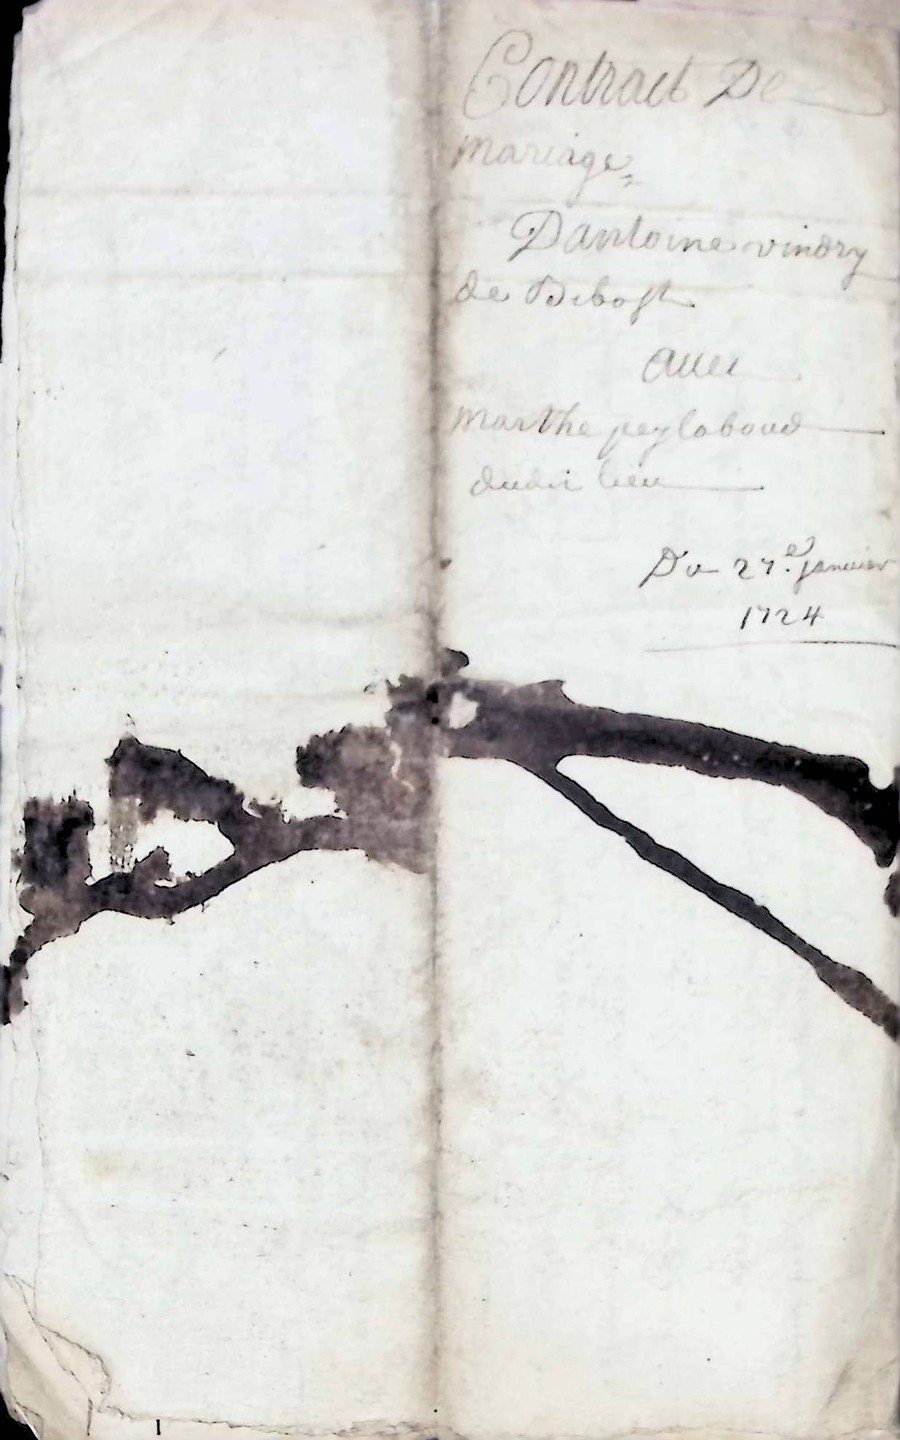 Contract De
mariage,
Dantoine vindry
de Bibost
avec
marthe peylaboud
dudit lieu
Du 27e. janvier
1724